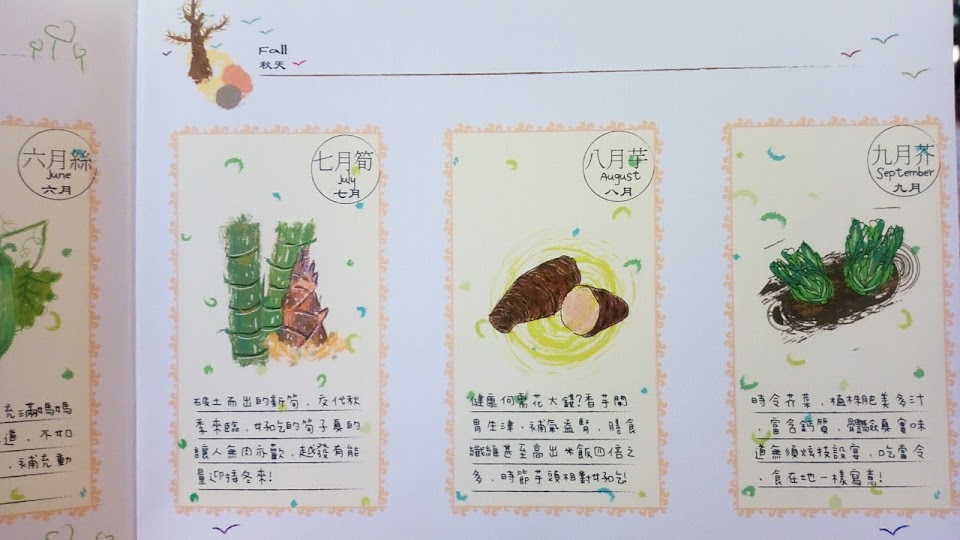 Fall
秋天
六月絲
June
六月
充滿媽媽
道、不如
、補充動
七月筍
July
七月
破土而出的新筍、交代秋
季來臨、好吃的筍子真的
讓人無肉亦歡、越發有能
量迎接冬來!
八月芋
August
八月
健康何需花大錢?香芋開
胃生津、補氣益腎、膳食
纖維甚至高出米飯四倍之
多、時節芋頭相對好吃
九月芥
September
九月
時令芥菜、植株肥美多汁
、富含鈣質、體驗真實味
道無須炫技設宴、吃當令
、食在地一樣寫意!